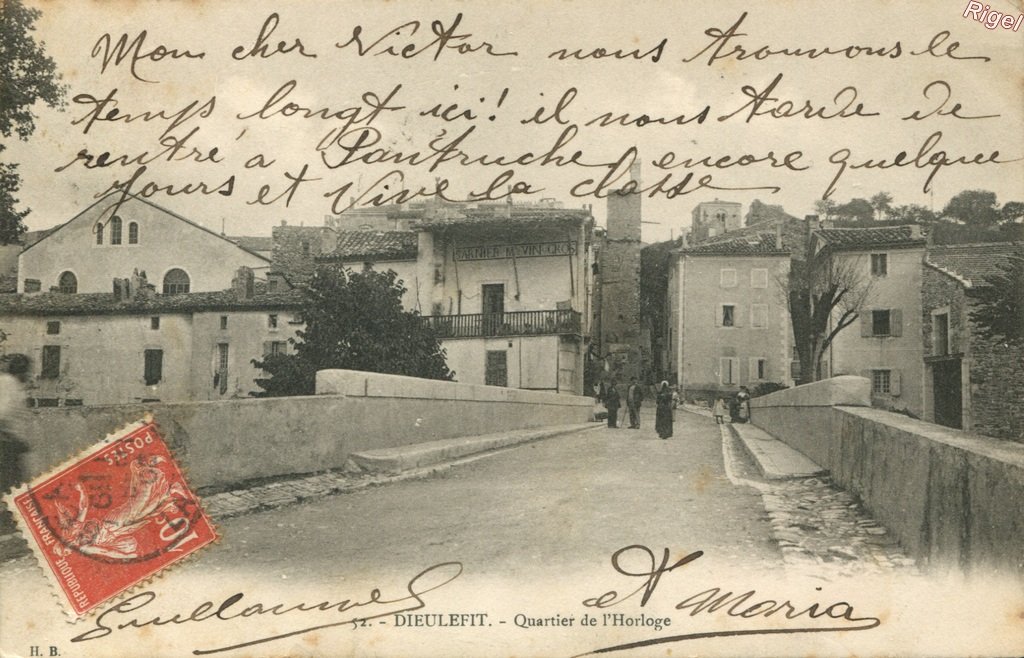 Rigel
Mon cher Victor nous trouvons le
temps longt ici! il nous tarde de
rentré à Pantruche, encore quelque
jours et vive la classe
GARNIER VIN GROS
POSTES
10c
RÉPUBLIQUE FRANÇAISE
Guillaume et Maria
52. - DIEULEFIT. - Quartier de l'Horloge
H. B.